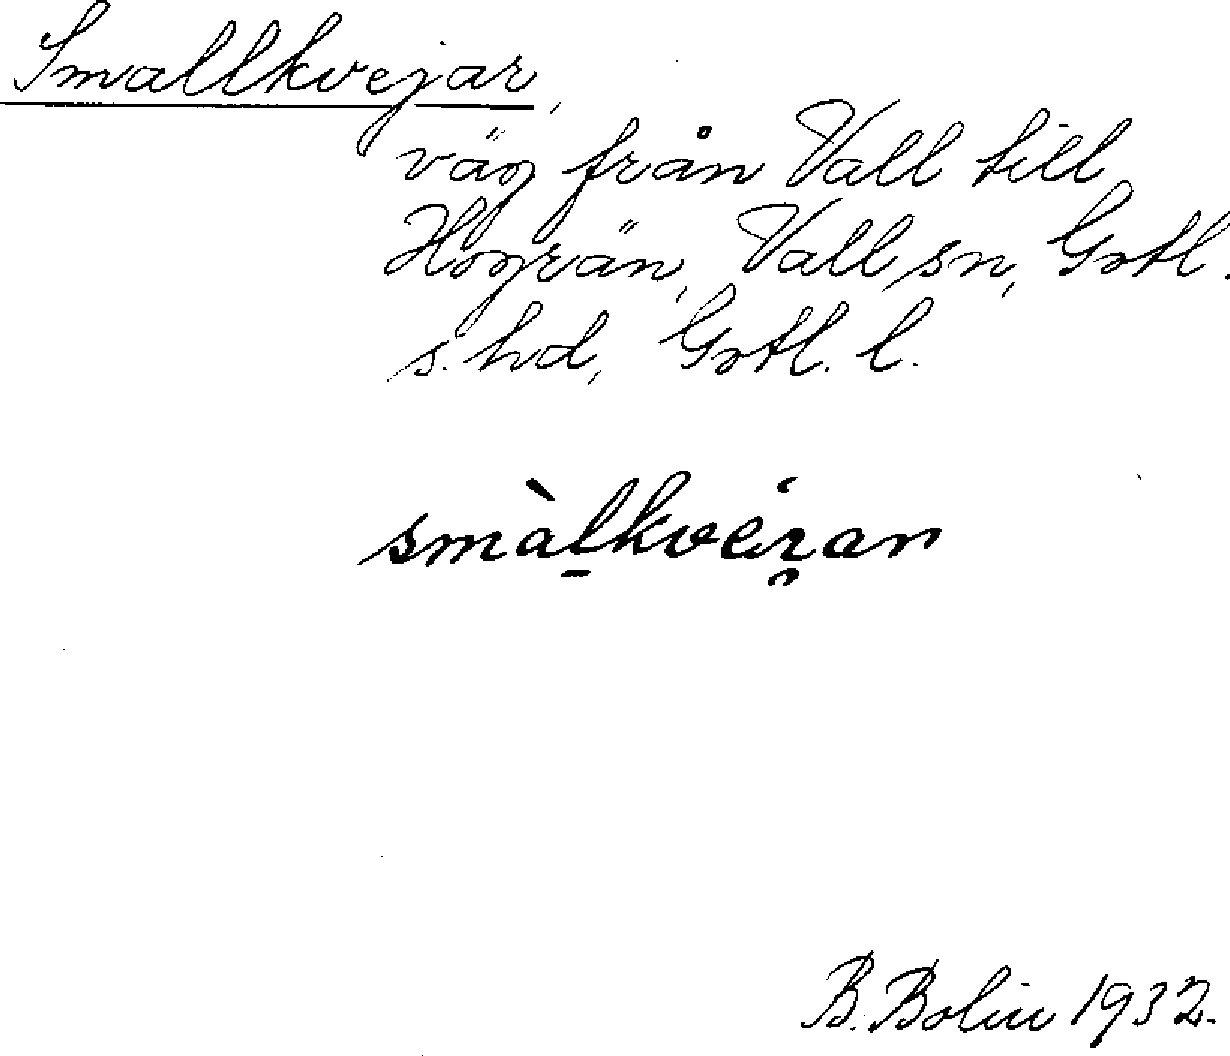 Smallkvejar,
väg från Vall till
Hogrän, Vall sn, Gotl.
s. hd, Gotl. l.
B. Bolin 1932.